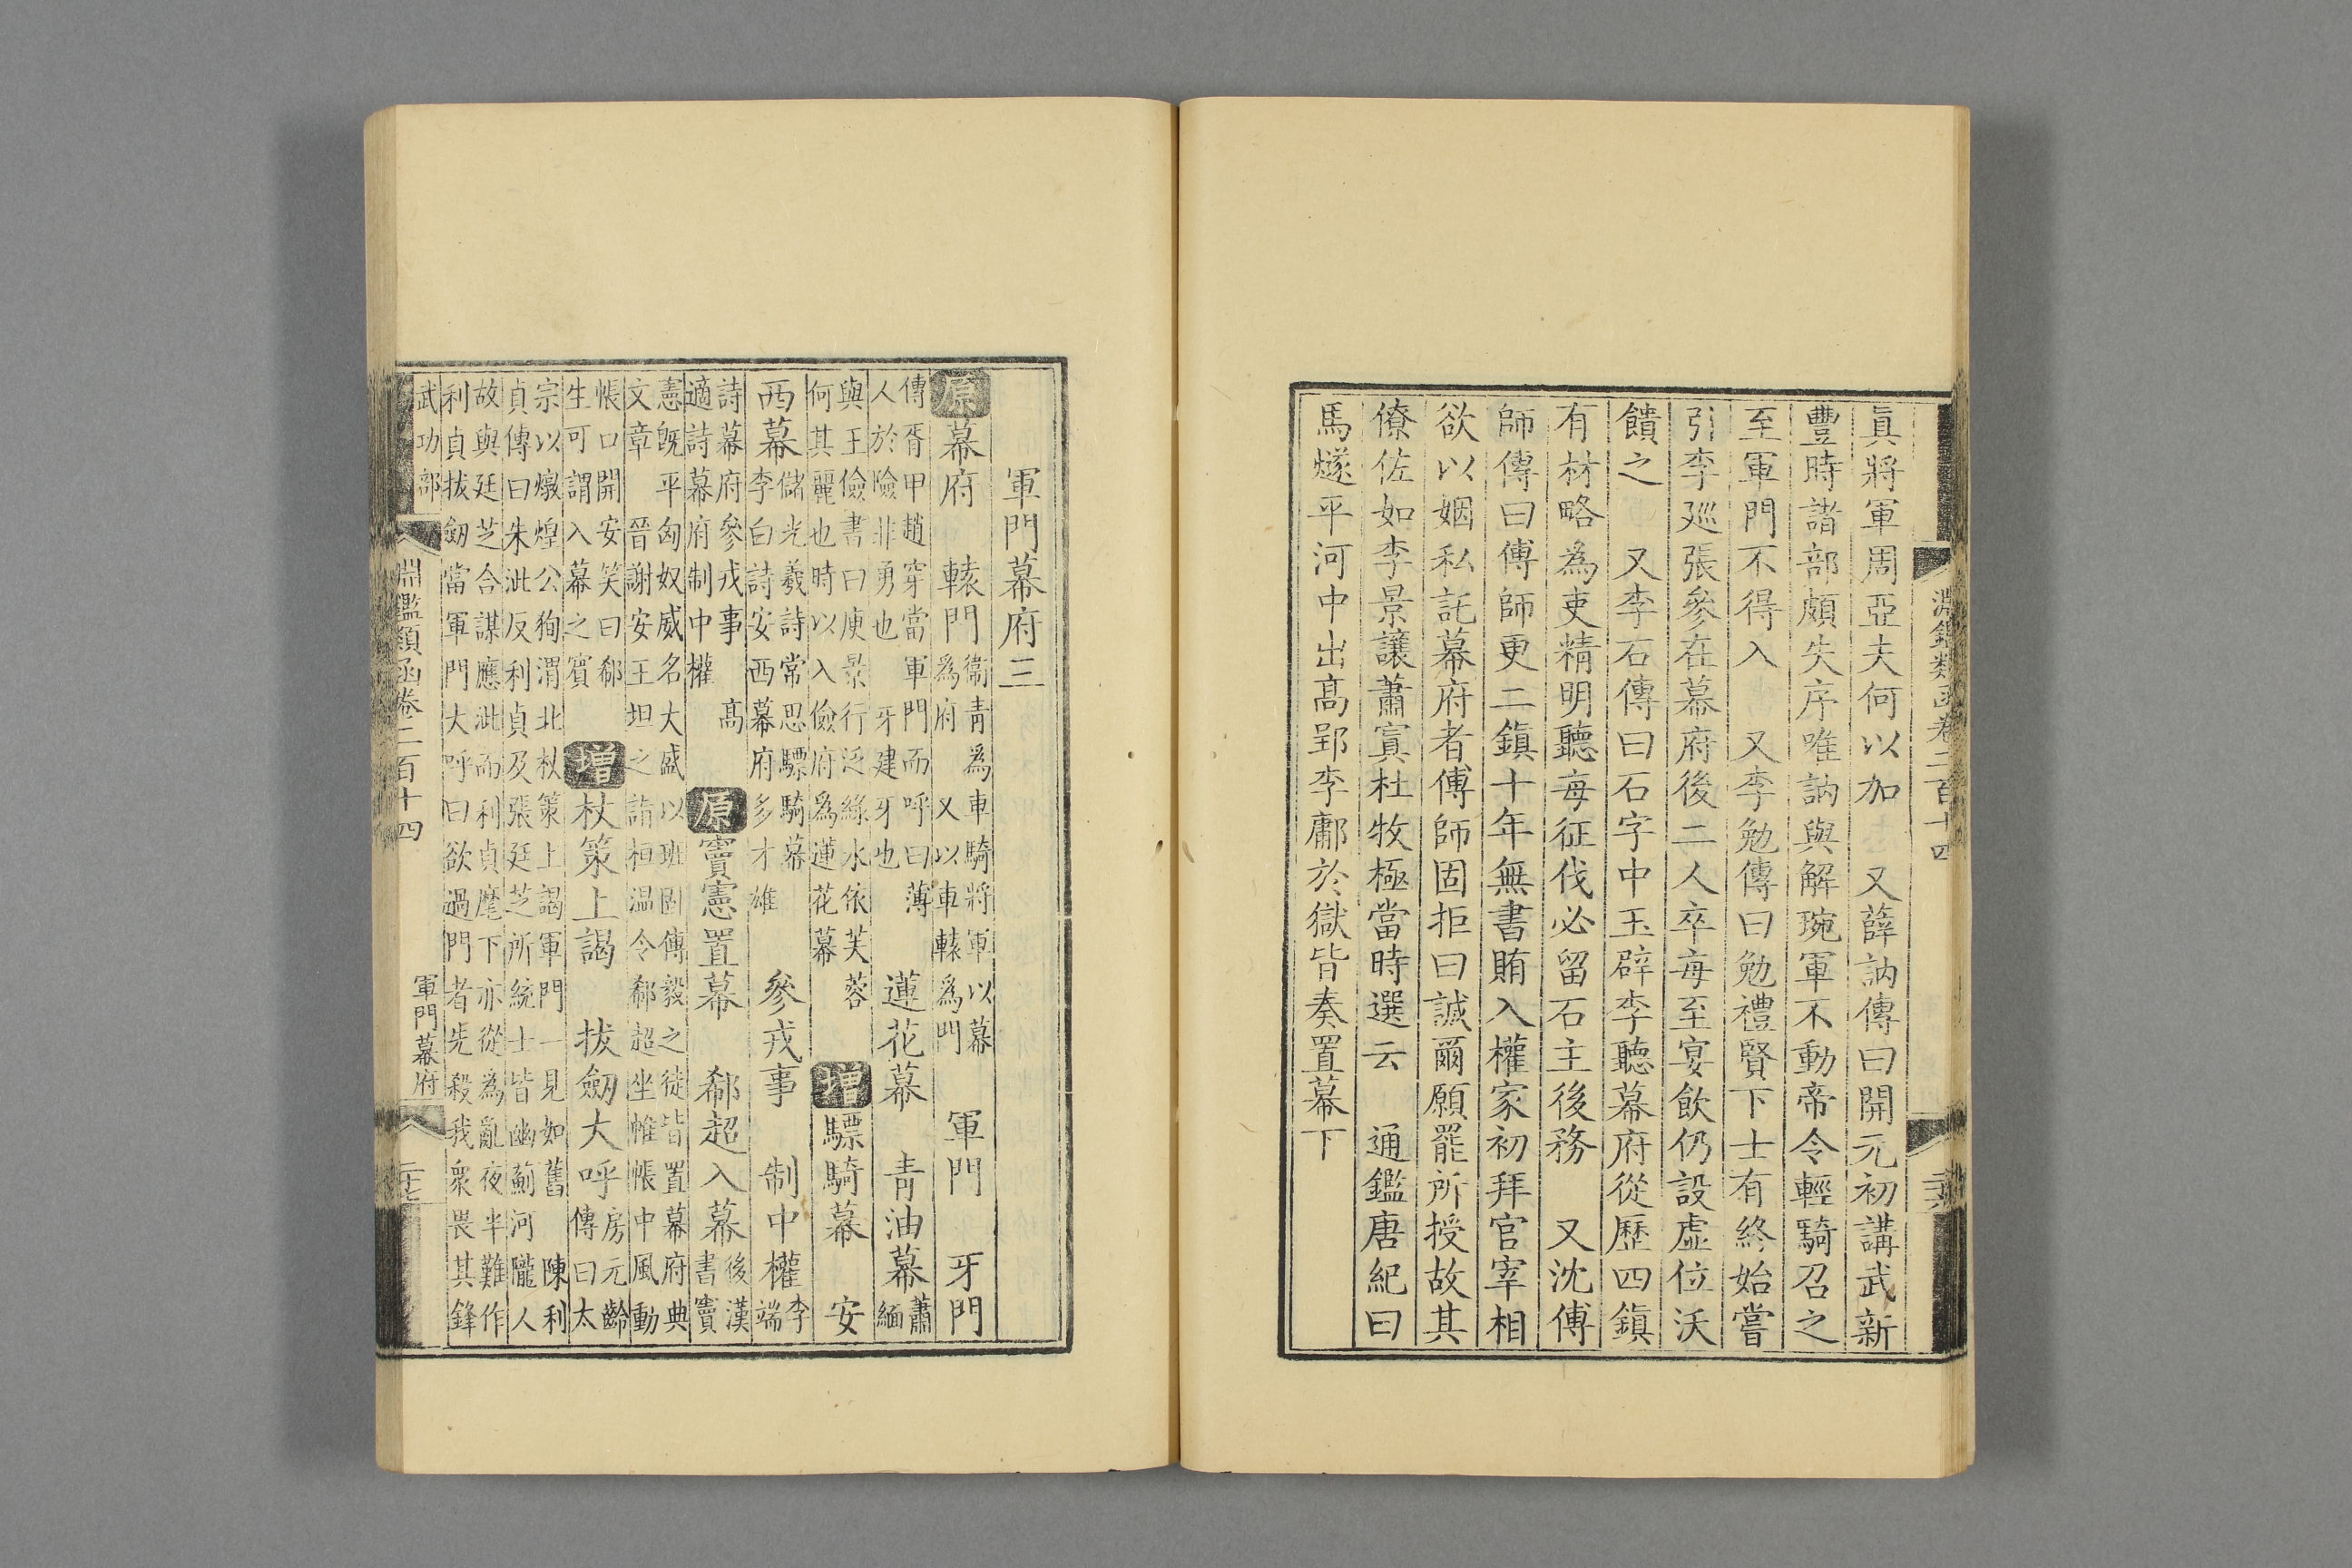 淵鑑類函卷二百十四
真將軍周亞夫何以加 又薛訥傳曰開元初講武新
豐時諸部頗失序唯訥與解琬軍不動帝令輕騎召之
至軍門不得入 又李勉傳曰勉禮賢下士有終始嘗
引李廵張參在幕府後二人卒每至宴飲仍設虛位沃
饋之 又李石傳曰石字中玉辟李聽幕府從歷四鎮
有材略為吏精明聽每征伐必留石主後務 又沈傅
師傳曰傅師更二鎮十年無書賄入權家初拜官宰相
欲以姻私託幕府者傅師固拒曰誠爾願罷所授故其
僚佐如李景讓蕭寘杜牧極當時選云 通鑑唐紀曰
馬燧平河中出高郢李鄘於獄皆奏置幕下
軍門幕府三
原幕府 轅門衞青為車騎將軍以幕
為府 又以車轅為門 軍門 牙門
傳胥甲趙穿當軍門而呼曰薄
人於險非勇也 牙建牙也 蓮花幕 青油幕蕭
緬
與王儉書曰庾景行泛綠水依芙蓉
何其麗也時以入儉府為蓮花幕 增驃騎幕 安
西幕儲光羲詩常思驃騎幕
李白詩安西幕府多才雄 參戎事 制中權李
端
詩幕府參戎事 高
適詩幕府制中權 原竇憲置幕 郗超入幕後漢
書竇
憲既平匈奴威名大盛以班固傅毅之徒皆置幕府典
文章 晉謝安王坦之詣桓温令郗超坐帷帳中風動
帳口開安笑曰郗
生可謂入幕之賓 增杖策上謁 拔劒大呼房元齡
傳曰太
宗以燉煌公狥渭北杖策上謁軍門一見如舊 陳利
貞傳曰朱泚反利貞及張廷芝所統士皆幽薊河隴人
故與廷芝合謀應泚而利貞麾下亦從為亂夜半難作
利貞拔劒當軍門大呼曰欲過門者先殺我衆畏其鋒
武功部
淵鑑類函卷二百十四
軍門幕府